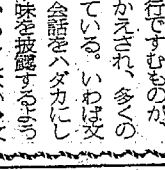 行ですむものが、
かえされ、多くの
ている。いわば文
会話をハダカにし
味を披露するよう